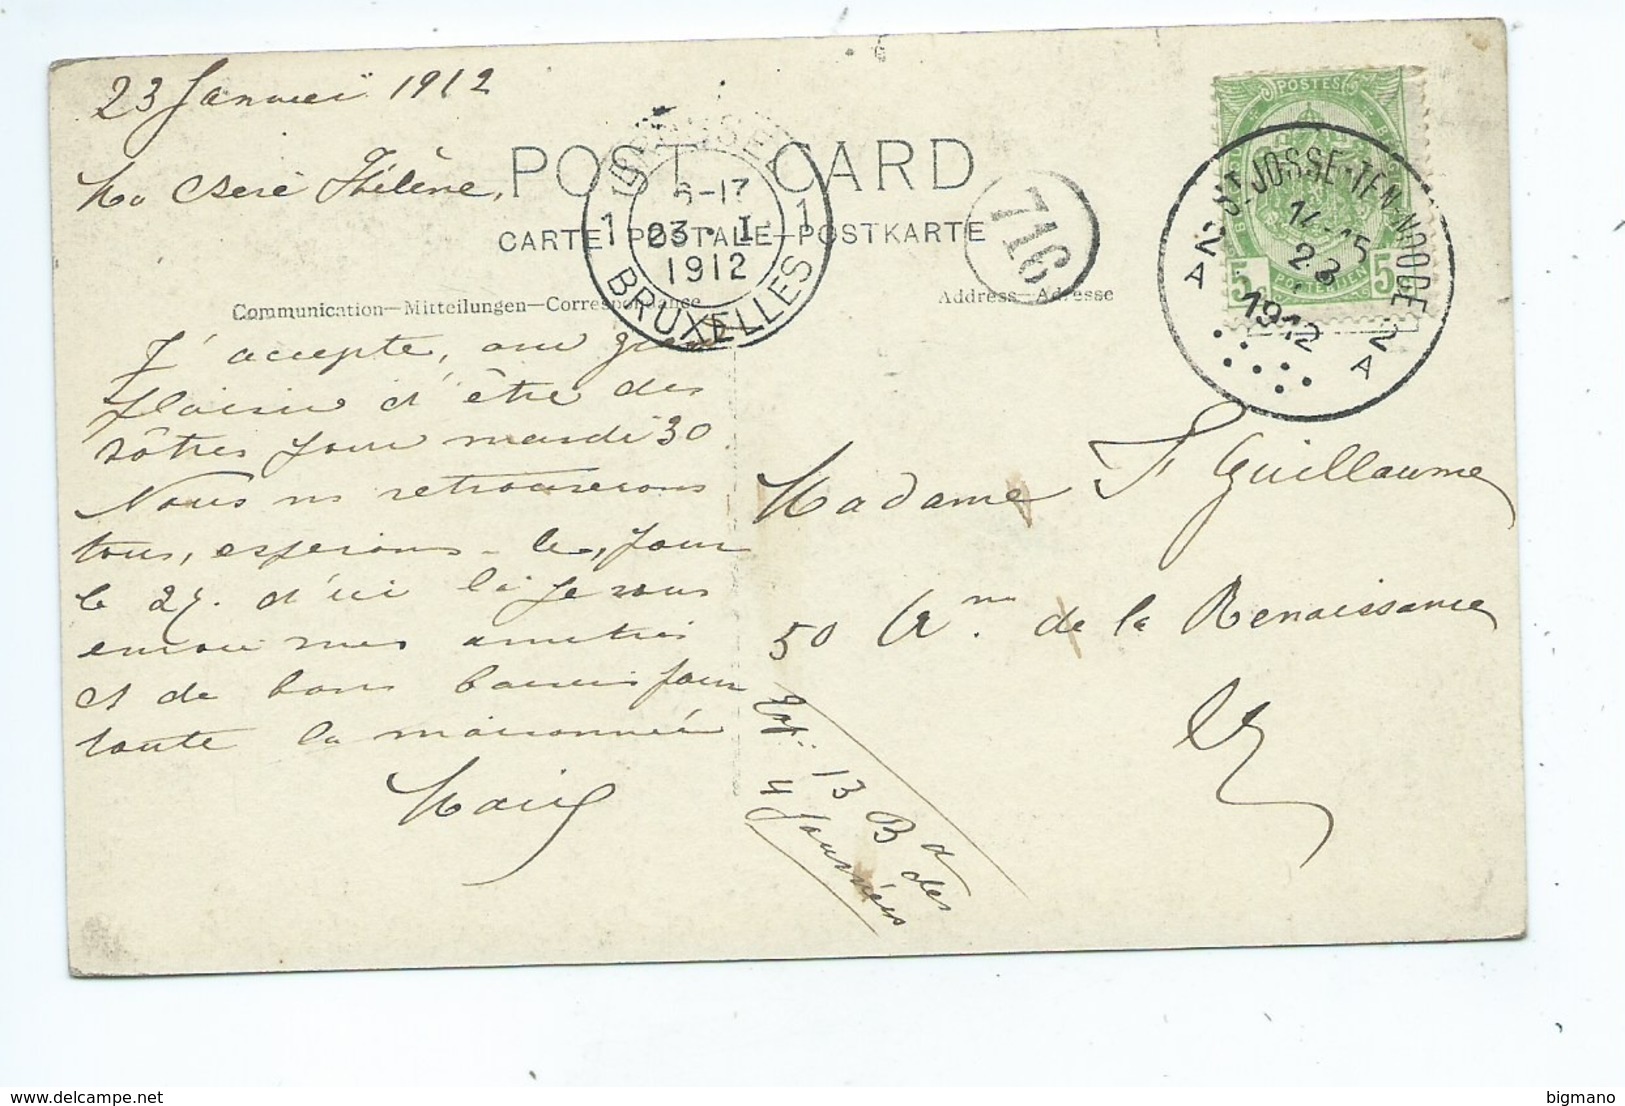 23 Janvier 1912
POST CARD
CARTE POSTALE—POSTKARTE
Communication—Mitteilungen—Correspondance
Address—Adresse
POSTES
5
POSTERIJEN
5
ST JOSSE-TEN-NOODE
14-15
23
1912
2 A
2 A
1
-17
23 · I
1
1912
BRUXELLES
716
Ma chère Hélène,
J'accepte, avec grand
plaisir d'être des
vôtres pour mardi 30
Nous ns retrouverons
tous, espérons-le, pour
le 27. d'ici là je vous
envoie mes amitiés
et de bons baisers pour
toute la maisonnée
Marie
Madame F Guillaume
50 Avnue de la Renaissance
EV
Exp: 13 Bd des
4 Journées
bigmano